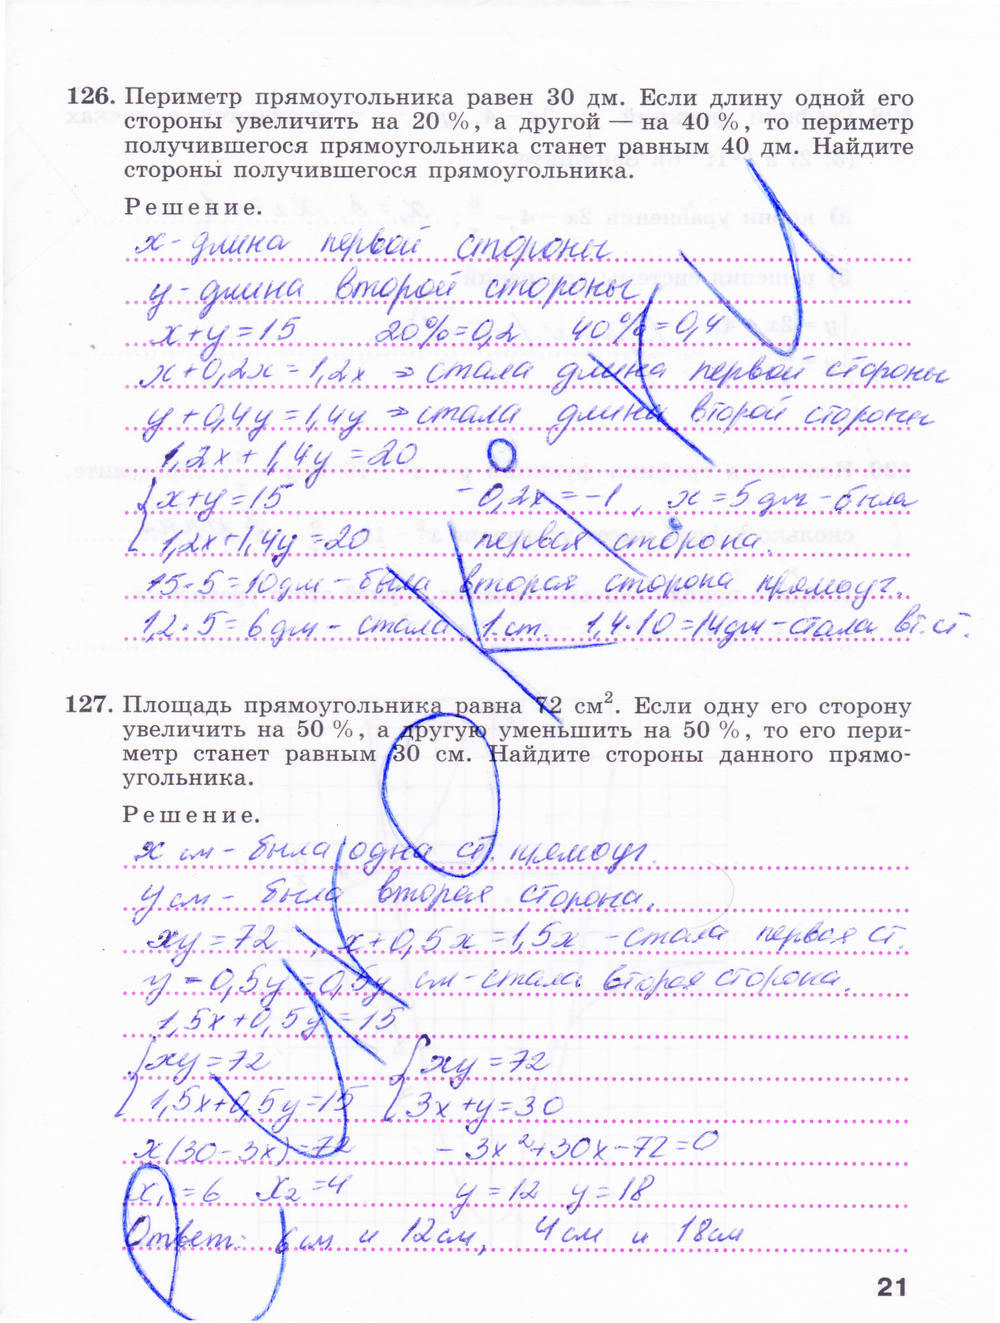 126. Периметр прямоугольника равен 30 дм. Если длину одной его
стороны увеличить на 20 %, а другой — на 40 %, то периметр
получившегося прямоугольника станет равным 40 дм. Найдите
стороны получившегося прямоугольника.
Решение.
x - длина первой стороны
y - длина второй стороны
x+y=15 20%=0,2 40%=0,4
x+0,2x=1,2x → стала длина первой стороны
y+0,4y=1,4y → стала длина второй стороны
1,2x+1,4y=20
{ x+y=15 -0,2x=-1, x=5дм - была
1,2x+1,4y=20 первая сторона.
15-5=10дм - была вторая сторона прямоуг.
1,2·5=6дм - стала 1.ст. 1,4·10=14дм - стала вт.ст.
127. Площадь прямоугольника равна 72 см². Если одну его сторону
увеличить на 50 %, а другую уменьшить на 50 %, то его пери-
метр станет равным 30 см. Найдите стороны данного прямо-
угольника.
Решение.
x см - была одна ст. прямоуг.
y см - была вторая сторона.
xy=72, x+0,5x=1,5x - стала первая ст.
y-0,5y=0,5y см - стала вторая сторона.
1,5x+0,5y=15
{ xy=72 { xy=72
1,5x+0,5y=15 3x+y=30
x(30-3x)=72 -3x²+30x-72=0
x₁=6 x₂=4 y=12 y=18
Ответ: 6см и 12см, 4см и 18см
21